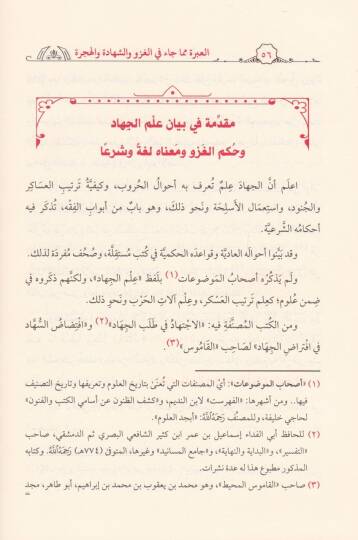 ٥٦
العبرة مما جاء في الغزو والشهادة والهجرة
مقدِّمة في بيان علْم الجِهاد
وحُكم الغَزو ومَعناه لغةً وشرعًا
اعلَم أنَّ الجهادَ عِلمٌ تُعرف به أحوالُ الحُروب، وكيفيَّةُ ترتيبِ العسَاكِر
والجُنود، واستِعمَال الأَسلِحَة ونَحوِ ذلكَ، وهو بابٌ من أبوابِ الفِقْه، تُذكَر فيه
أحكامُه الشَّرعيَّة.
وقد بَيَّنوا أحوالَه العاديَّة وقواعدَه الحكميَّة في كُتب مُستقِلَّة، وصُحُف مُفرَدَة لذلك.
ولم يَذكُرْه أصحابُ المَوضوعات(١) بلَفظ «عِلم الجِهاد»، ولكنَّهم ذكَروه في
ضِمن عُلوم؛ كعِلم تَرتيب العَسكر، وعِلم آلاتِ الحَرْب ونَحوِ ذلك.
ومن الكُتب المُصنَّفةِ فيه: «الاجتِهادُ في طلَب الجِهاد»(٢) و«افْتِضاضُ السُّهَّاد
في افْتراضِ الجِهاد» لصَاحِب «القَامُوس»(٣).
(١) «أصحاب الموضوعات»: أيْ المصنفات التي تُعنَىٰ بتاريخ العلوم وتعريفها وتاريخ التصنيف
فيها.. ومن أشهرها: «الفهرست» لابن النديم، و«كشف الظنون عن أسامي الكتب والفنون»
لحاجي خليفة، وللمصنِّف رَحِمَهُ اللَّهُ: «أبجد العلوم».
(٢) للحافظ أبي الفداء إسماعيل بن عمر ابن كثير الشافعي البصري ثم الدمشقي، صاحب
«التفسير»، و«البداية والنهاية»، و«جامع المسانيد» وغيرها، المتوفى (٧٧٤هـ) رَحِمَهُ اللَّهُ. وكتابه
المذكور مطبوع هذا له عدة نشرات.
(٣) صاحب «القاموس المحيط»، وهو محمد بن يعقوب بن محمد بن إبراهيم، أبو طاهر، مجد
=